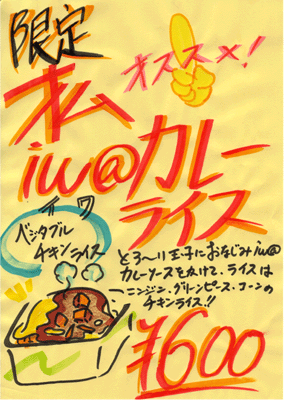 限定
オススメ!
私
iw@カレー
ライス
イワ
ベジタブル
チキンライス
とろ〜り玉子におなじみiw@
カレーソースをかけて、ライスは
ニンジン、グリーンピース、コーンの
チキンライス!!
¥600